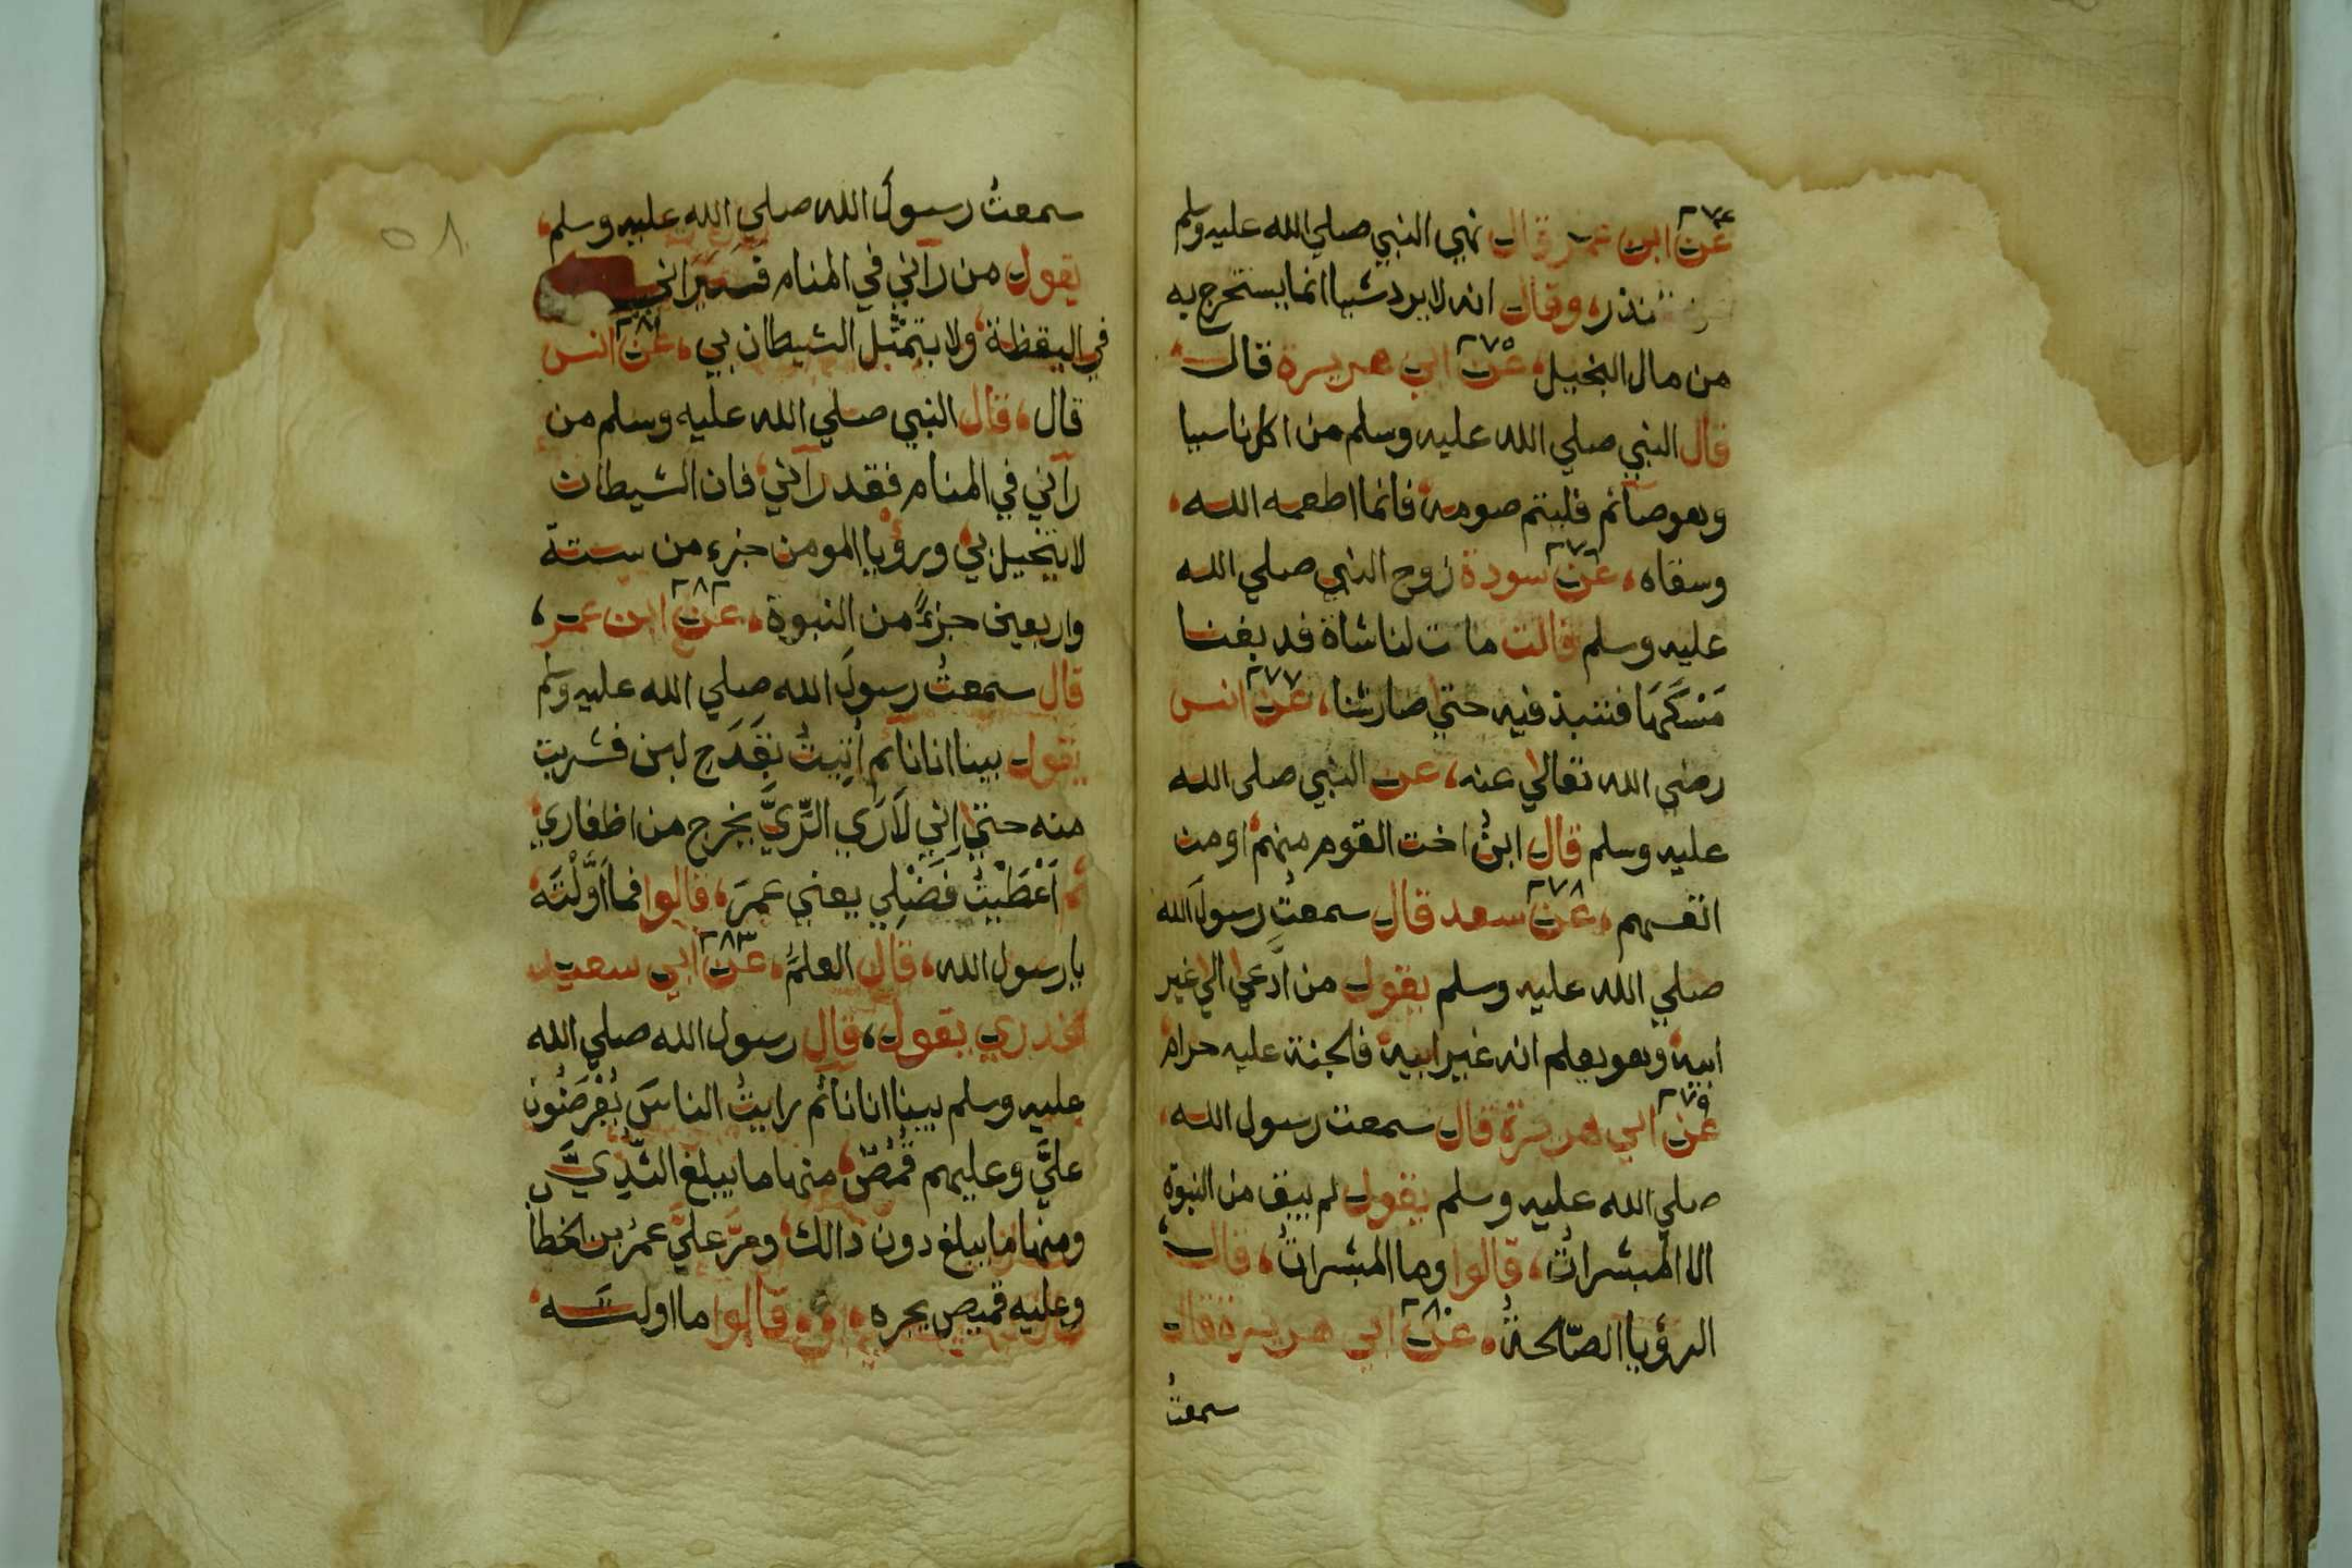 ٢٧٤
عن ابن عمر قال نهي النبي صلي الله عليه وسلم
عن النذر، وقال انه لا يرد شيا انما يستخرج به
من مال البخيل، عن ٢٧٥ ابي هريرة قال
قال النبي صلي الله عليه وسلم من اكل ناسيا
وهو صآئم فليتم صومه فانما اطعمه الله
وسقاه، عن ٢٧٦ سودة زوج النبي صلي الله
عليه وسلم قالت ماتت لنا شاة فدبغنا
مَسْكَهَا فننبذ فيه حتي صار شنا، عن ٢٧٧ انس
رضي الله تعالي عنه، عن النبي صلي الله
عليه وسلم قال ابنُ اخت القوم منهم او من
انفسهم، عن ٢٧٨ سعد قال سمعتُ رسولَ الله
صلي الله عليه وسلم يقول من ادّعي الي غير
ابيه وهو يعلم انه غير ابيه فالجنة عليه حرام
عن ٢٧٩ ابي هريرة قال سمعت رسول الله
صلي الله عليه وسلم يقول لم يبق من النبوة
الا المبشراتُ، قالوا وما المبشراتُ، قال
الرؤيا الصّالحةُ، عن ٢٨٠ ابي هريرة قال
سمعتُ
٥٨
سمعتُ رسولَ الله صلي الله عليه وسلم،
يقول من رآني في المنام فسيراني
في اليقظة، ولا يتمثّل الشيطان بي، عن ٢٨١ انس
قال، قال النبي صلي الله عليه وسلم من
رآني في المنام فقد رآني، فان الشيطان
لا يتخيل بي ورؤيا المومن جزء من ستة
واربعين جزءً من النبوة، عن ٢٨٢ ابن عمر،
قال سمعتُ رسولَ الله صلي الله عليه وسلم
يقول بينا انا نآئم اُتِيتُ بقَدَحِ لبن فشربت
منه حتي اِنِّي لَاَرَي الرِّيَّ يخرج من اظفاري
ثم اَعْطَيْتُ فَضْلِي يعني عمرَ، قالوا فما اَوَّلْتَه
يا رسول الله، قال العلمَ، عن ٢٨٣ ابي سعيد
الخدري يقول، قال رسول الله صلي الله
عليه وسلم بينا انا نآئم رايتُ الناسَ يُعْرَضُون
عليَّ وعليهم قُمُصٌ، منها ما يبلغ الثُّدِيَّ
ومنها ما يبلغ دون ذالك، ومرَّ عليَّ عمرُ بن الخطاب
وعليه قميص يجره، قالوا ما اولته